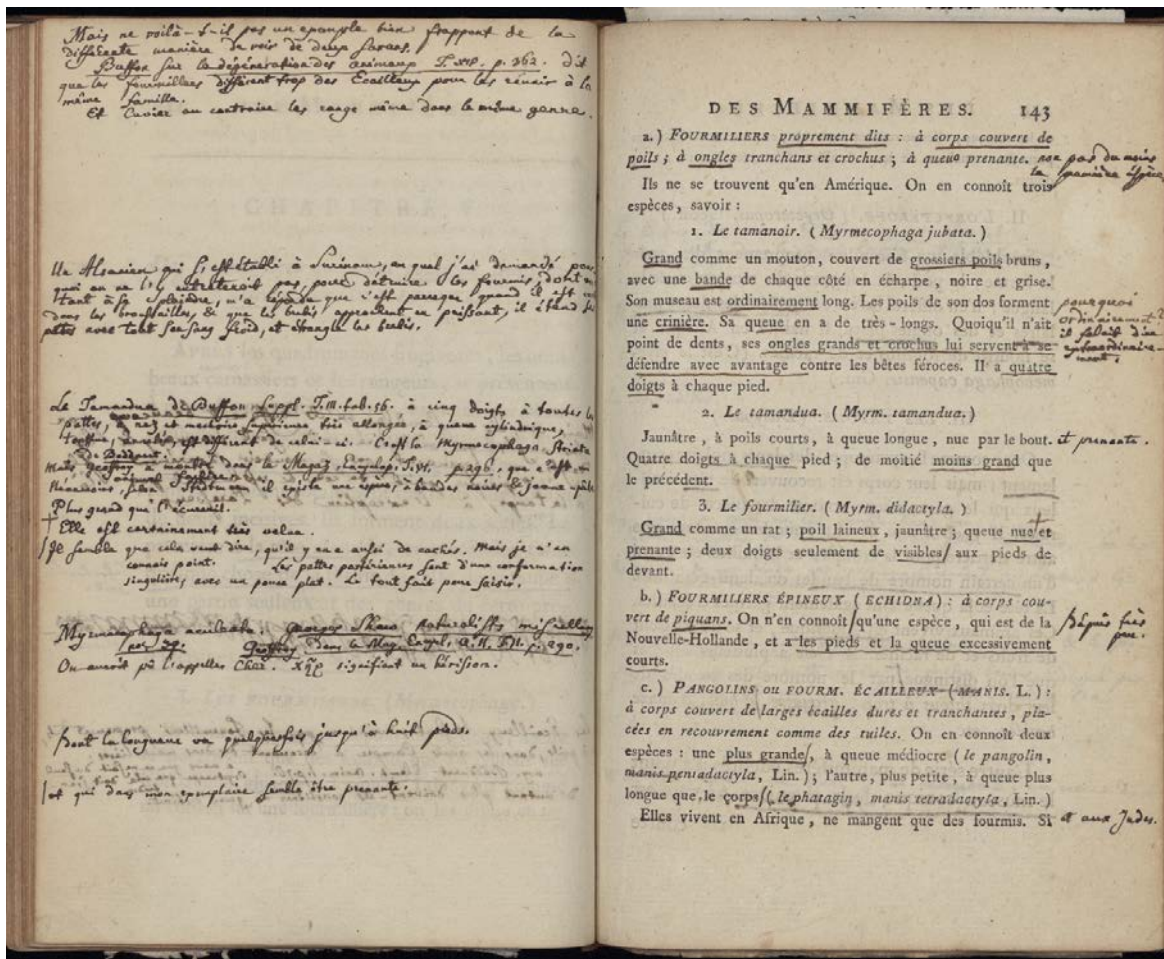 Mais ne voilà-t-il pas un exemple bien frappant de la
differente manière de voir de deux savans.
Buffon sur la dégénération des animaux T. XIV. p. 362. dit
que les fourmillers diffèrent trop des Ecailleux pour les réunir à la
même famille.
Et Cuvier au contraire les range même dans le même genre.
Un Alsacien qui s'est établi à Surinam, au quel j'ai demandé pour
quoi on ne s'y pas, pour détruire les fourmis, dont on
tant à se plaindre, m'a que c'est parceque quand il est
dans les broussailles, & que les brebis approchent en paissant, il étend ses
pattes avec tout son sang froid, et étrangle les brebis.
Le Tamandua de Buffon Suppl. T. III. tab. 56. à cinq doigts à toutes les
pattes, à nez et machoire supérieure très allongée, à queue cylindrique,
est différent de celui-ci. C'est la Myrmecophaga Striata
De Boddaert.
Mais Geoffroy a montré dans le Magaz. Encyclop. T. VI. p. 296. que c'est un
il existe une espèce, à bandes noires & jaune pâle
Plus grand que l'écureuil.
Elle est certainement très velue.
Il semble que cela veut dire, qu'il y en a aussi de cachés. Mais je n'en
connois point. Les pattes postérieures sont d'une conformation
singulière, avec un pouce plat. Le tout fait pour saisir.
Myrmecophaga aculeata. Georges Shaw naturalists miscellany
no. 29. Geoffroy dans le Mag. Encycl. a. II. T. VI. p. 290.
On auroit pû l'appeller Chær. Χηρ signifiant un hérisson.
Dont la longueur va quelquesfois jusqu'à huit pieds.
et qui dans mon exemplaire semble être prenante.
DES MAMMIFÈRES. 143
a.) FOURMILIERS proprement dits : à corps couvert de
poils ; à ongles tranchans et crochus ; à queue prenante. non pas du moins
la première espèce
Ils ne se trouvent qu'en Amérique. On en connoît trois
espèces, savoir :
1. Le tamanoir. (Myrmecophaga jubata.)
Grand comme un mouton, couvert de grossiers poils bruns,
avec une bande de chaque côté en écharpe, noire et grise.
Son museau est ordinairement long. Les poils de son dos forment
une crinière. Sa queue en a de très-longs. Quoiqu'il n'ait
point de dents, ses ongles grands et crochus lui servent à se
défendre avec avantage contre les bêtes féroces. Il a quatre
doigts à chaque pied.
pourquoi
ordinairement?
il falait dire
extraordinaire-
ment.
2. Le tamandua. (Myrm. tamandua.)
Jaunâtre, à poils courts, à queue longue, nue par le bout. et prenante.
Quatre doigts à chaque pied ; de moitié moins grand que
le précédent.
3. Le fourmilier. (Myrm. didactyla.)
Grand comme un rat ; poil laineux, jaunâtre ; queue nue et
prenante ; deux doigts seulement de visibles aux pieds de
devant.
b.) FOURMILIERS ÉPINEUX (ECHIDNA) : à corps cou-
vert de piquans. On n'en connoît qu'une espèce, qui est de la
Nouvelle-Hollande, et a les pieds et la queue excessivement
courts.
Depuis très
peu.
c.) PANGOLINS OU FOURM. ÉCAILLEUX (MANIS. L.) :
à corps couvert de larges écailles dures et tranchantes, pla-
cées en recouvrement comme des tuiles. On en connoît deux
espèces : une plus grande, à queue médiocre (le pangolin,
manis pentadactyla, Lin.) ; l'autre, plus petite, à queue plus
longue que le corps (le phatagin, manis tetradactyla, Lin.)
Elles vivent en Afrique, ne mangent que des fourmis. Si et aux Indes.